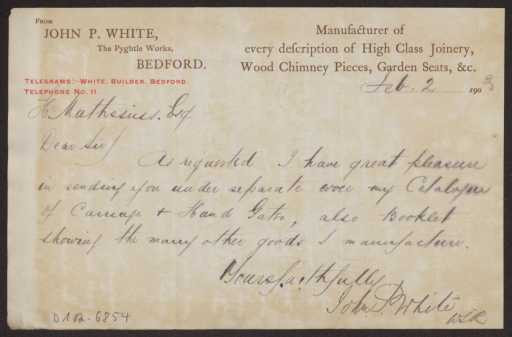 From
JOHN P. WHITE,
The Pyghtle Works,
BEDFORD.
TELEGRAMS:- WHITE, BUILDER, BEDFORD.
TELEPHONE NO. 11
Manufacturer of
every description of High Class Joinery,
Wood Chimney Pieces, Garden Seats, &c.
Feb. 2 1903
H. Mathesius. Esq
Dear Sir/
As requested I have great pleasure
in sending you under separate cover my Catalogue
of Carriage & Hand Gates, also Booklet
showing the many other goods I manufacture.
Yours faithfully
John P. White
D 102-6854